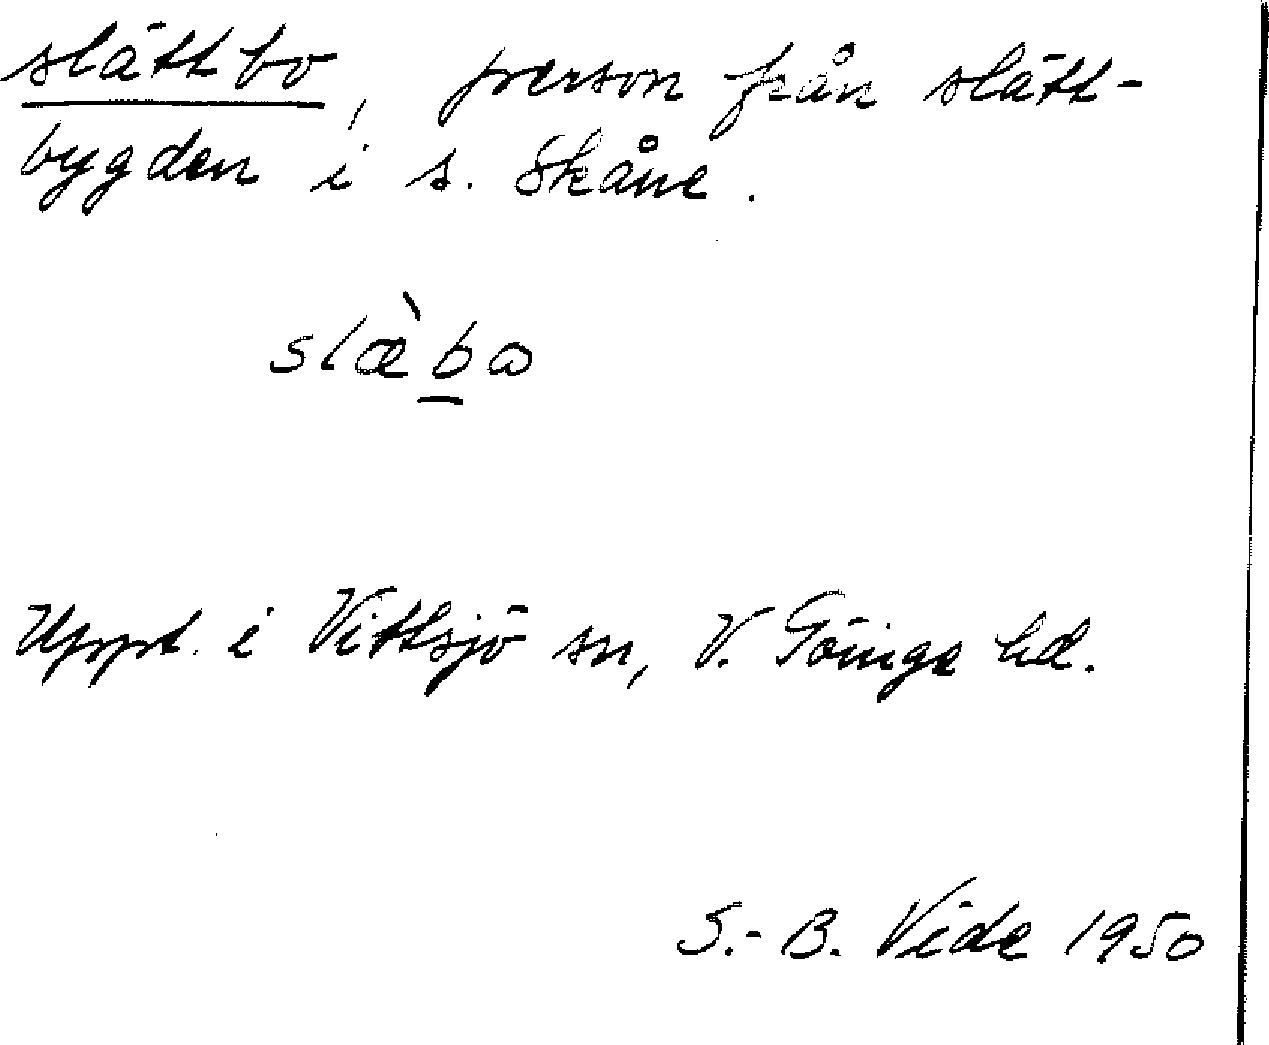 slättbo, person från slätt-
bygden i s. Skåne.
slæ̀b̲ɷ
Uppt. i Vittsjö sn, V. Göinge hd.
S.-B. Vide 1950